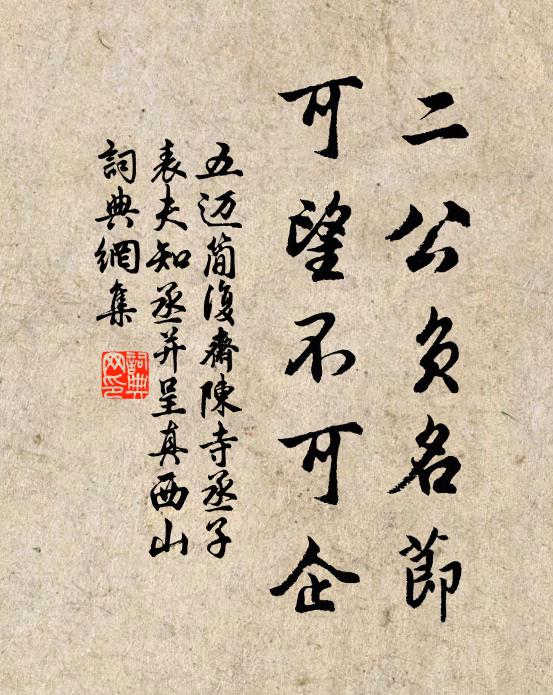 二公负名節
可望不可企
五迈简復齋陳寺丞子
表夫知丞并呈真西山
詞典網集
詞典网印